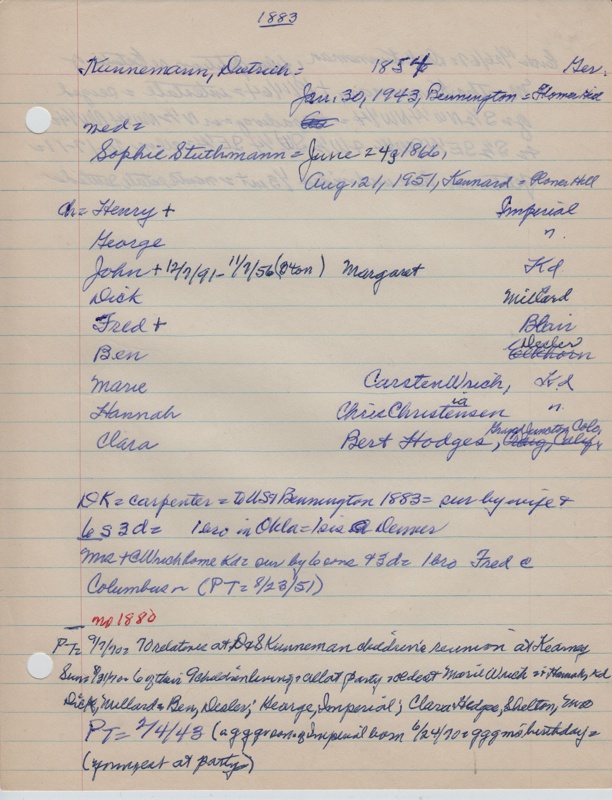 1883
Kunnemann, Dietrich = 1854 Ger.
Jan. 30, 1943, Bennington = Homer
med =
Sophie Stuthmann = June 24, 1866,
Aug. 21, 1951, Kennard = Hill
ch = Henry + Imperial
George n.
John + 12/7/91 - 11/7/56 Margaret Kd
Dick Millard
Fred + Blair
Ben Desler Elkhorn
Marie Carsten Wrich, Kd
Hannah Chris Christensen ia n.
Clara Bert Hodges, Grand Junction Colo, Craig, Calif,
DK = carpenter = to USA Bennington 1883 = sur by wife &
6 s 3 d = 1 bro in Okla = 1 sis Denver
Mrs + C Wrich home Kd = sur by 6 sons + 3 d = 1 bro Fred @
Columbus n (PT = 8/23/51)
no 1880
PT = 9/7/70 = 70 relatives at D & S Kunneman children's reunion at Kearney
Sun = 8/31/70 = 6 of their 9 children living = all at party = oldest Marie Wrich Hannah, Kd
Dick, Millard = Ben, Desler; George, Imperial; Clara Hodges, Shelton,
PT = 2/4/43 (a g g grson of Imperial born 6/24/70 = g g gm's birthday =
(youngest at party)